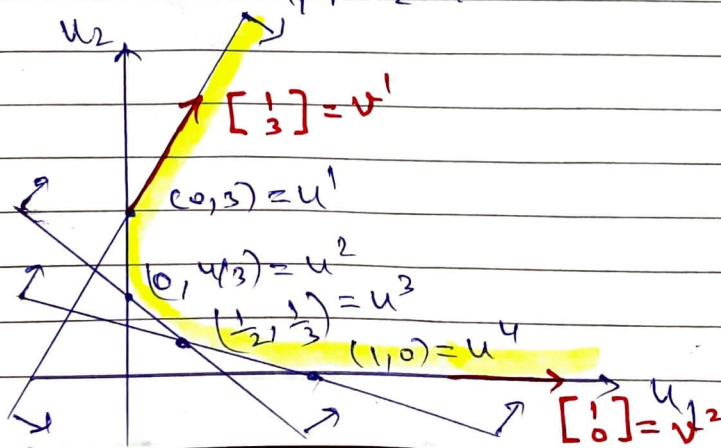 u₂
[1 3] = v¹
(0,3) = u¹
(0, 4/3) = u²
(1/2, 1/3) = u³
(1,0) = u⁴
u₁
[1 0] = v²